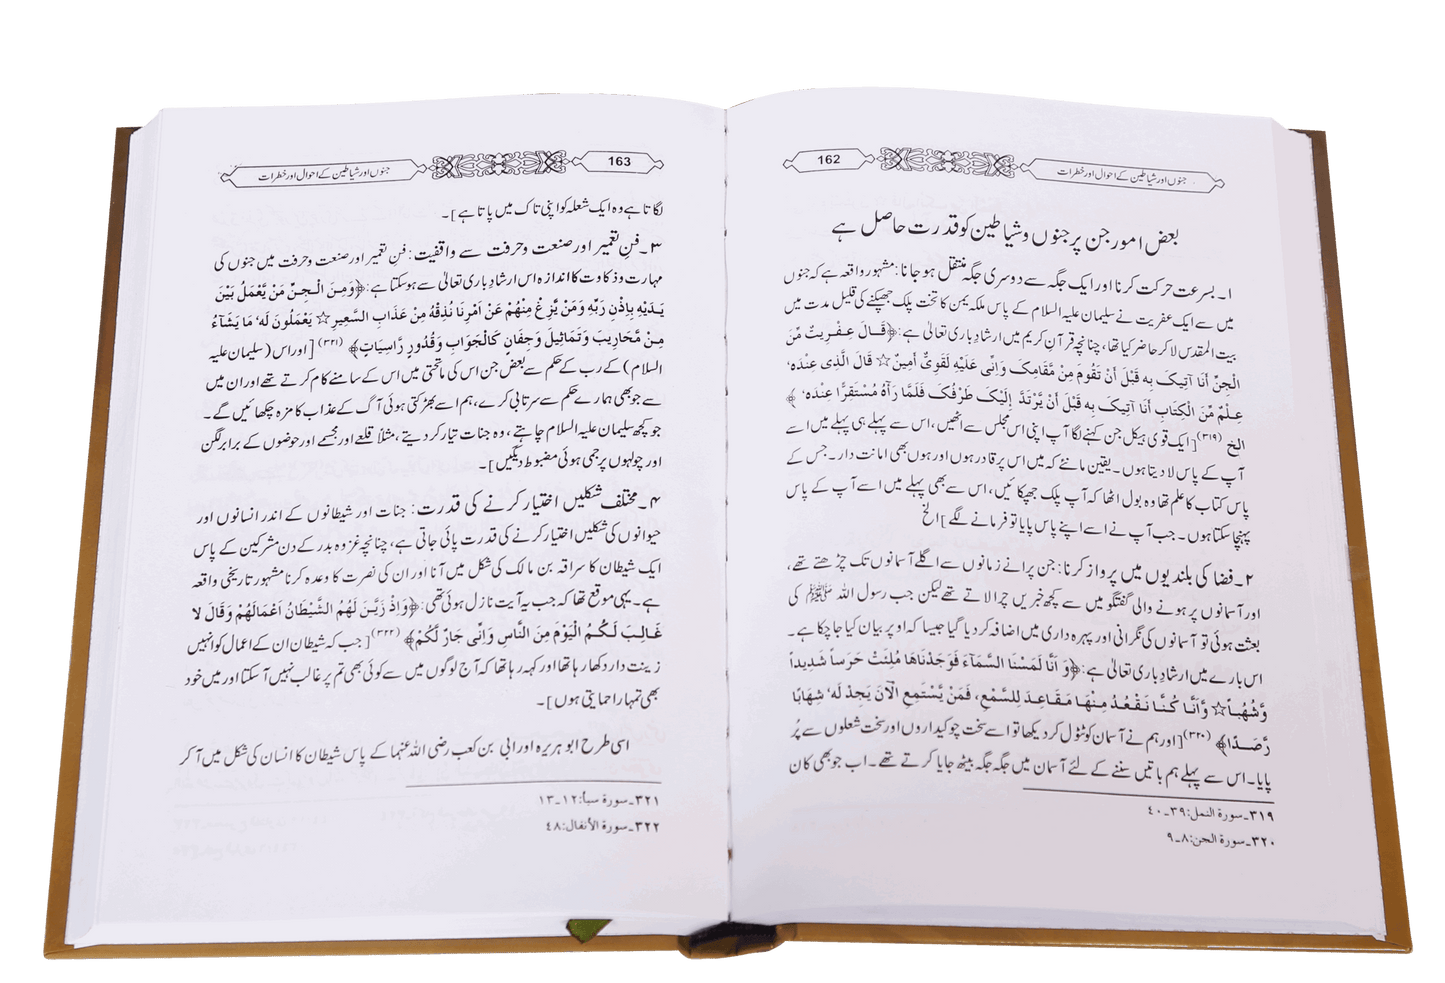 162
جنوں اور شیاطین کے احوال اور خطرات
بعض امور جن پر جنوں و شیاطین کو قدرت حاصل ہے
۱۔ بسرعت حرکت کرنا اور ایک جگہ سے دوسری جگہ منتقل ہو جانا: مشہور واقعہ ہے کہ جنوں
میں سے ایک عفریت نے سلیمان علیہ السلام کے پاس ملکہ یمن کا تخت پلک جھپکنے کی قلیل مدت میں
بیت المقدس لا کر حاضر کیا تھا، چنانچہ قرآن کریم میں ارشاد باری تعالیٰ ہے: ﴿قَالَ عِفْرِيتٌ مِّنَ
الْجِنِّ أَنَا آتِيكَ بِهِ قَبْلَ أَنْ تَقُومَ مِنْ مَّقَامِكَ وَإِنِّى عَلَيْهِ لَقَوِىٌّ أَمِينٌ☆ قَالَ الَّذِى عِنْدَهُ،
عِلْمٌ مِّنَ الْكِتَابِ أَنَا آتِيكَ بِهِ قَبْلَ أَنْ يَّرْتَدَّ إِلَيْكَ طَرْفُكَ فَلَمَّا رَآهُ مُسْتَقِرًّا عِنْدَهُ، ﴾
الخ (۳۱۹)[ایک قوی ہیکل جن کہنے لگا آپ اپنی اس مجلس سے اٹھیں، اس سے پہلے ہی پہلے میں اسے
آپ کے پاس لا دیتا ہوں۔ یقین مانئے کہ میں اس پر قادر ہوں اور ہوں بھی امانت دار۔ جس کے
پاس کتاب کا علم تھا وہ بول اٹھا کہ آپ پلک جھپکائیں، اس سے بھی پہلے میں اسے آپ کے پاس
پہنچا سکتا ہوں۔ جب آپ نے اسے اپنے پاس پایا تو فرمانے لگے] الخ
۲۔ فضا کی بلندیوں میں پرواز کرنا: جن پرانے زمانوں سے اگلے آسمانوں تک چڑھتے تھے،
اور آسمانوں پر ہونے والی گفتگو میں سے کچھ خبریں چرا لاتے تھے لیکن جب رسول اللہ ﷺ کی
بعثت ہوئی تو آسمانوں کی نگرانی اور پہرہ داری میں اضافہ کر دیا گیا جیسا کہ اوپر بیان کیا جا چکا ہے۔
اس بارے میں ارشاد باری تعالیٰ ہے: ﴿وَ أَنَّا لَمَسْنَا السَّمَآءَ فَوَجَدْنَاهَا مُلِئَتْ حَرَساً شَدِيداً
وَّشُهُباً☆ وَّأَنَّا كُنَّا نَقْعُدُ مِنْهَا مَقَاعِدَ لِلسَّمْعِ، فَمَنْ يَّسْتَمِعِ الْآنَ يَجِدْ لَهُ، شِهَابًا
رَّصَدًا﴾ (۳۲۰)[اور ہم نے آسمان کو ٹٹول کر دیکھا تو اسے سخت چوکیداروں اور سخت شعلوں سے پُر
پایا۔ اس سے پہلے ہم باتیں سننے کے لئے آسمان میں جگہ جگہ بیٹھ جایا کرتے تھے۔ اب جو بھی کان
۳۱۹۔سورة النمل:۳۹۔۴۰
۳۲۰۔سورة الجن:۸۔۹
163
جنوں اور شیاطین کے احوال اور خطرات
لگاتا ہے وہ ایک شعلہ کو اپنی تاک میں پاتا ہے]۔
۳۔ فنِ تعمیر اور صنعت و حرفت سے واقفیت: فن تعمیر اور صنعت و حرفت میں جنوں کی
مہارت و ذکاوت کا اندازہ اس ارشاد باری تعالیٰ سے ہو سکتا ہے: ﴿وَمِنَ الْجِنِّ مَنْ يَّعْمَلُ بَيْنَ
يَدَيْهِ بِإِذْنِ رَبِّهِ وَمَنْ يَّزِغْ مِنْهُمْ عَنْ أَمْرِنَا نُذِقْهُ مِنْ عَذَابِ السَّعِيرِ☆ يَعْمَلُونَ لَهُ، مَا يَشَآءُ
مِنْ مَّحَارِيبَ وَتَمَاثِيلَ وَجِفَانٍ كَالْجَوَابِ وَقُدُورٍ رَّاسِيَاتٍ﴾ (۳۲۱) [اور اس (سلیمان علیہ
السلام) کے رب کے حکم سے بعض جن اس کی ماتحتی میں اس کے سامنے کام کرتے تھے اور ان میں
سے جو بھی ہمارے حکم سے سرتابی کرے، ہم اسے بھڑکتی ہوئی آگ کے عذاب کا مزہ چکھائیں گے۔
جو کچھ سلیمان علیہ السلام چاہتے، وہ جنات تیار کر دیتے، مثلاً قلعے اور مجسمے اور حوضوں کے برابر لگن
اور چولہوں پر جمی ہوئی مضبوط دیگیں]۔
۴۔ مختلف شکلیں اختیار کرنے کی قدرت: جنات اور شیطانوں کے اندر انسانوں اور
حیوانوں کی شکلیں اختیار کرنے کی قدرت پائی جاتی ہے، چنانچہ غزوہ بدر کے دن مشرکین کے پاس
ایک شیطان کا سراقہ بن مالک کی شکل میں آنا اور ان کی نصرت کا وعدہ کرنا مشہور تاریخی واقعہ
ہے۔ یہی موقع تھا کہ جب یہ آیت نازل ہوئی تھی: ﴿وَإِذْ زَيَّنَ لَهُمُ الشَّيْطَانُ أَعْمَالَهُمْ وَقَالَ لَا
غَالِبَ لَكُمُ الْيَوْمَ مِنَ النَّاسِ وَإِنِّى جَارٌ لَّكُمْ﴾ (۳۲۲)[جب کہ شیطان ان کے اعمال کو انہیں
زینت دار دکھا رہا تھا اور کہہ رہا تھا کہ آج لوگوں میں سے کوئی بھی تم پر غالب نہیں آ سکتا اور میں خود
بھی تمہارا حمایتی ہوں]۔
اسی طرح ابو ہریرہ اور ابی بن کعب رضی اللہ عنہما کے پاس شیطان کا انسان کی شکل میں آ کر
۳۲۱۔سورة سبأ:۱۲۔۱۳
۳۲۲۔سورة الأنفال:۴۸